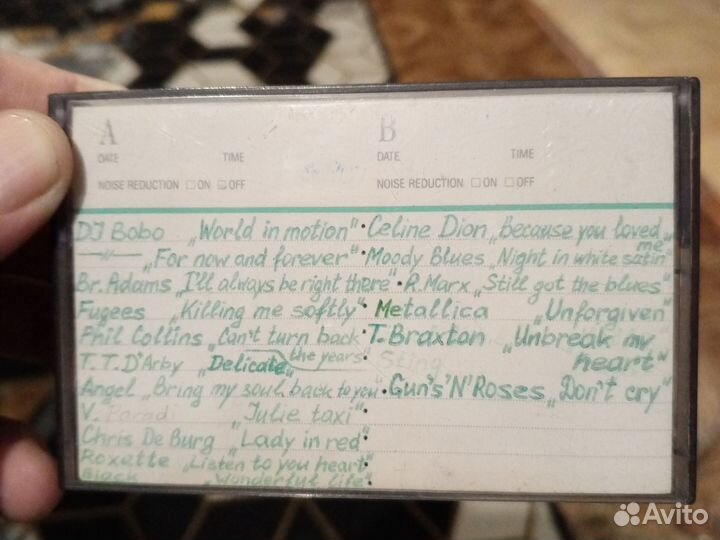 A
DATE TIME
NOISE REDUCTION ☐ON ☐OFF
DJ Bobo „World in motion"
—"— „For now and forever"
Br. Adams „I'll always be right there"
Fugees „Killing me softly"
Phil Collins „Can't turn back
the years"
T.T.D'Arby „Delicate"
Angel „Bring my soul back to you"
V. Paradi „Julie taxi"
Chris De Burg „Lady in red"
Roxette „Listen to you heart"
Black „Wonderful life"
B
DATE TIME
NOISE REDUCTION ☐ON ☐OFF
• Celine Dion „Because you loved
me"
• Moody Blues „Night in white satin"
• R. Marx „Still got the blues"
Metallica „Unforgiven"
T. Braxton „Unbreak my
heart"
Sting
• Gun's 'N' Roses „Don't cry"
Avito